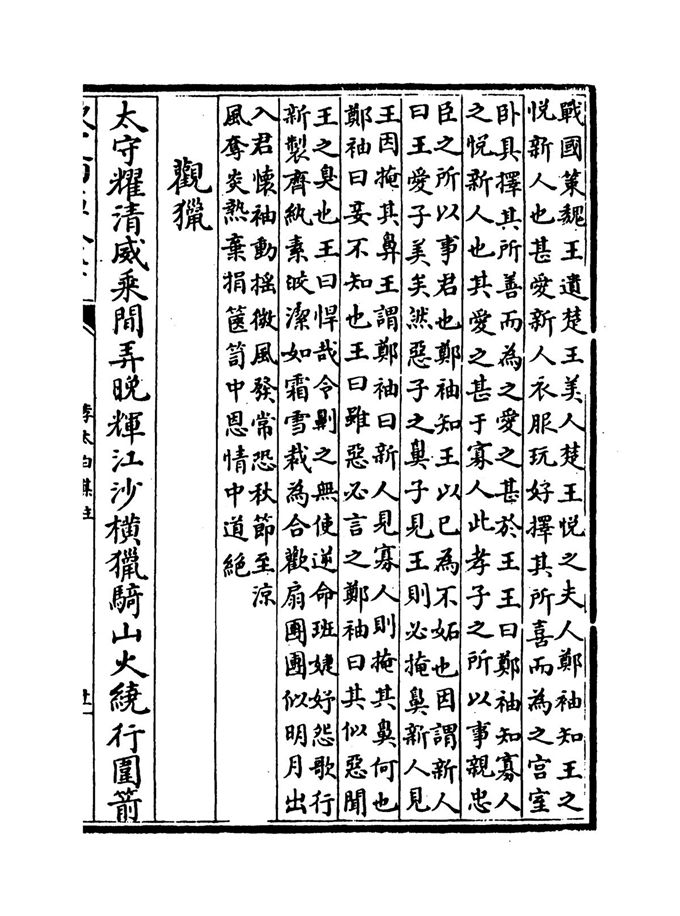 戰國策魏王遺楚王美人楚王悅之夫人鄭袖知王之
悅新人也甚愛新人衣服玩好擇其所喜而為之宫室
卧具擇其所善而為之愛之甚於王王曰鄭袖知寡人
之悅新人也其愛之甚于寡人此孝子之所以事親忠
臣之所以事君也鄭袖知王以已為不妬也因謂新人
曰王愛子美矣然惡子之鼻子見王則必掩鼻新人見
王因掩其鼻王謂鄭袖曰新人見寡人則掩其鼻何也
鄭袖曰妾不知也王曰雖惡必言之鄭袖曰其似惡聞
王之臭也王曰悍哉令劓之無使逆命班婕妤怨歌行
新製齊紈素皎潔如霜雪裁為合歡扇團團似明月出
入君懷袖動摇微風發常恐秋節至涼
風奪炎熱棄捐篋笥中恩情中道絶
觀獵
太守耀清威乘閒弄晚輝江沙橫獵騎山火繞行圍箭
李太白集註